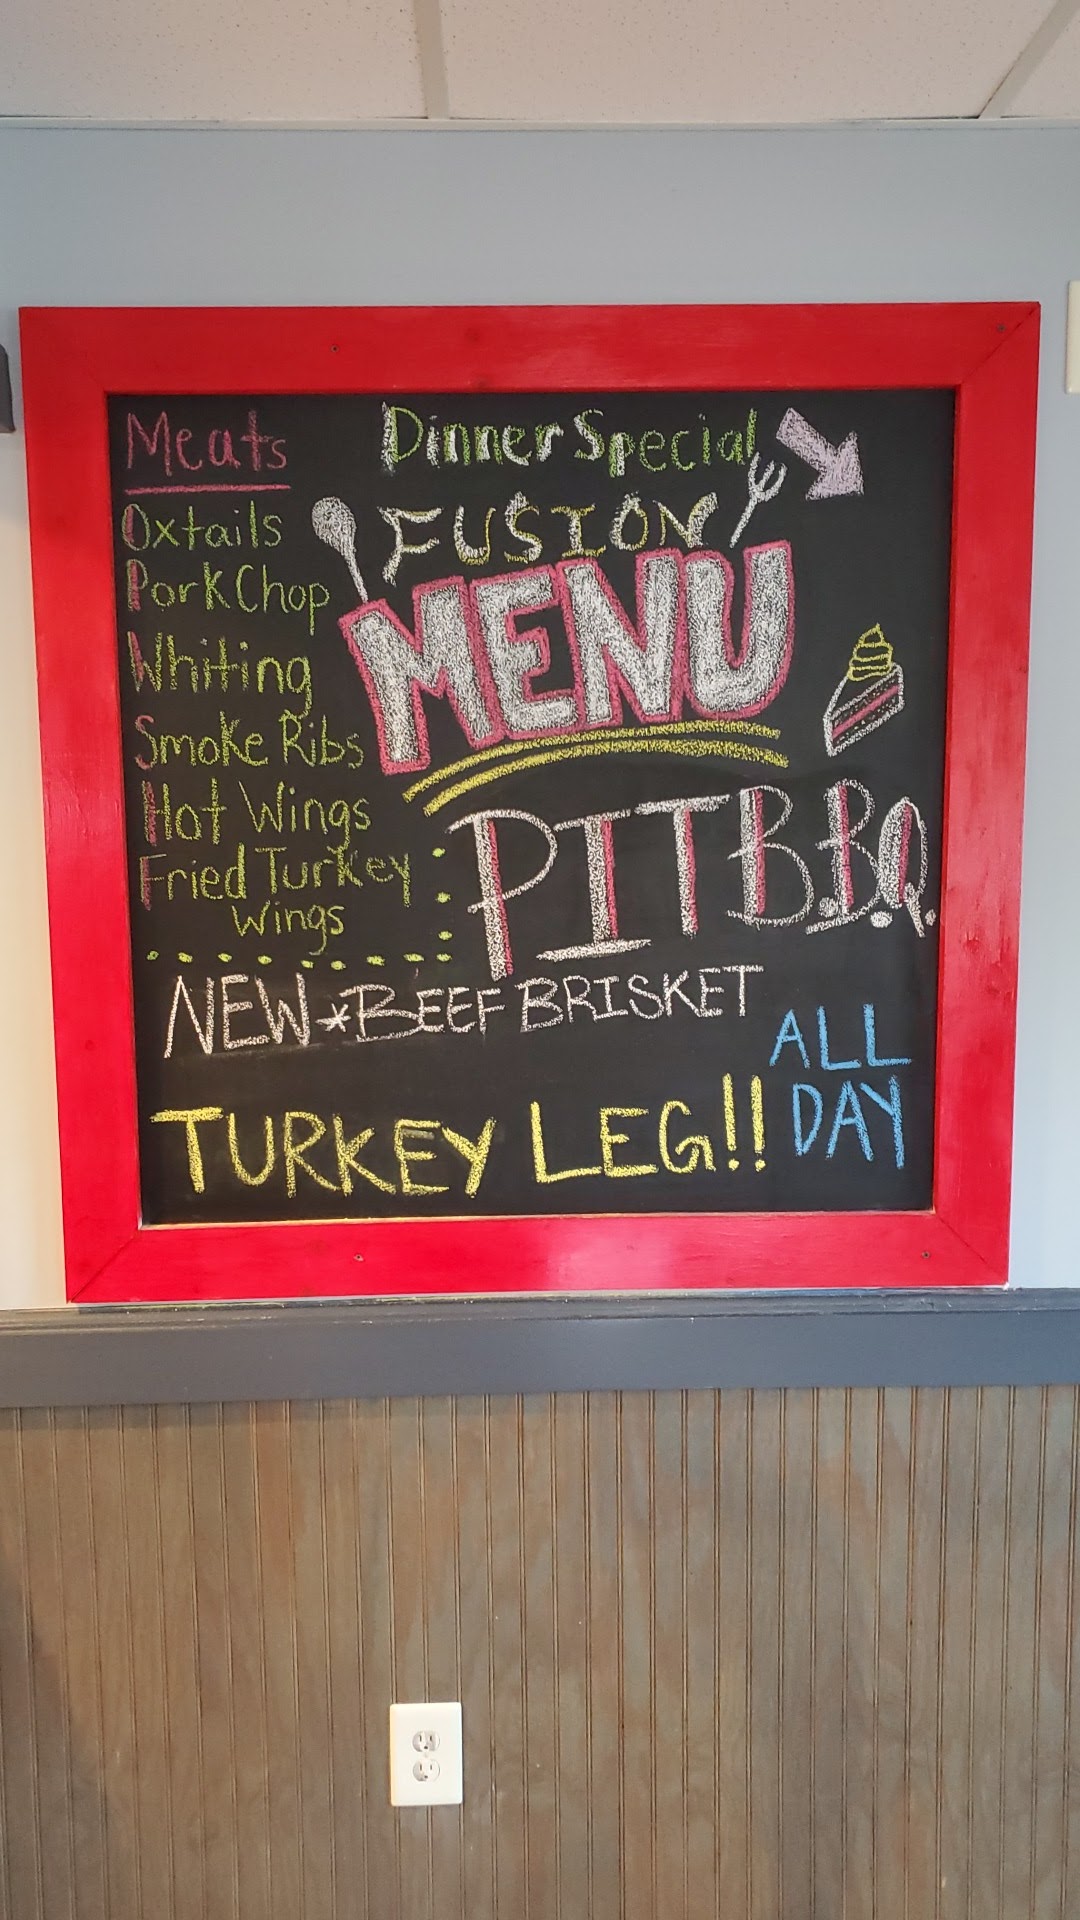 Meats
Oxtails
Pork Chop
Whiting
Smoke Ribs
Hot Wings
Fried Turkey
Wings
Dinner Special
FUSION
MENU
PIT B.B.Q.
NEW *BEEF BRISKET
TURKEY LEG!!
ALL
DAY